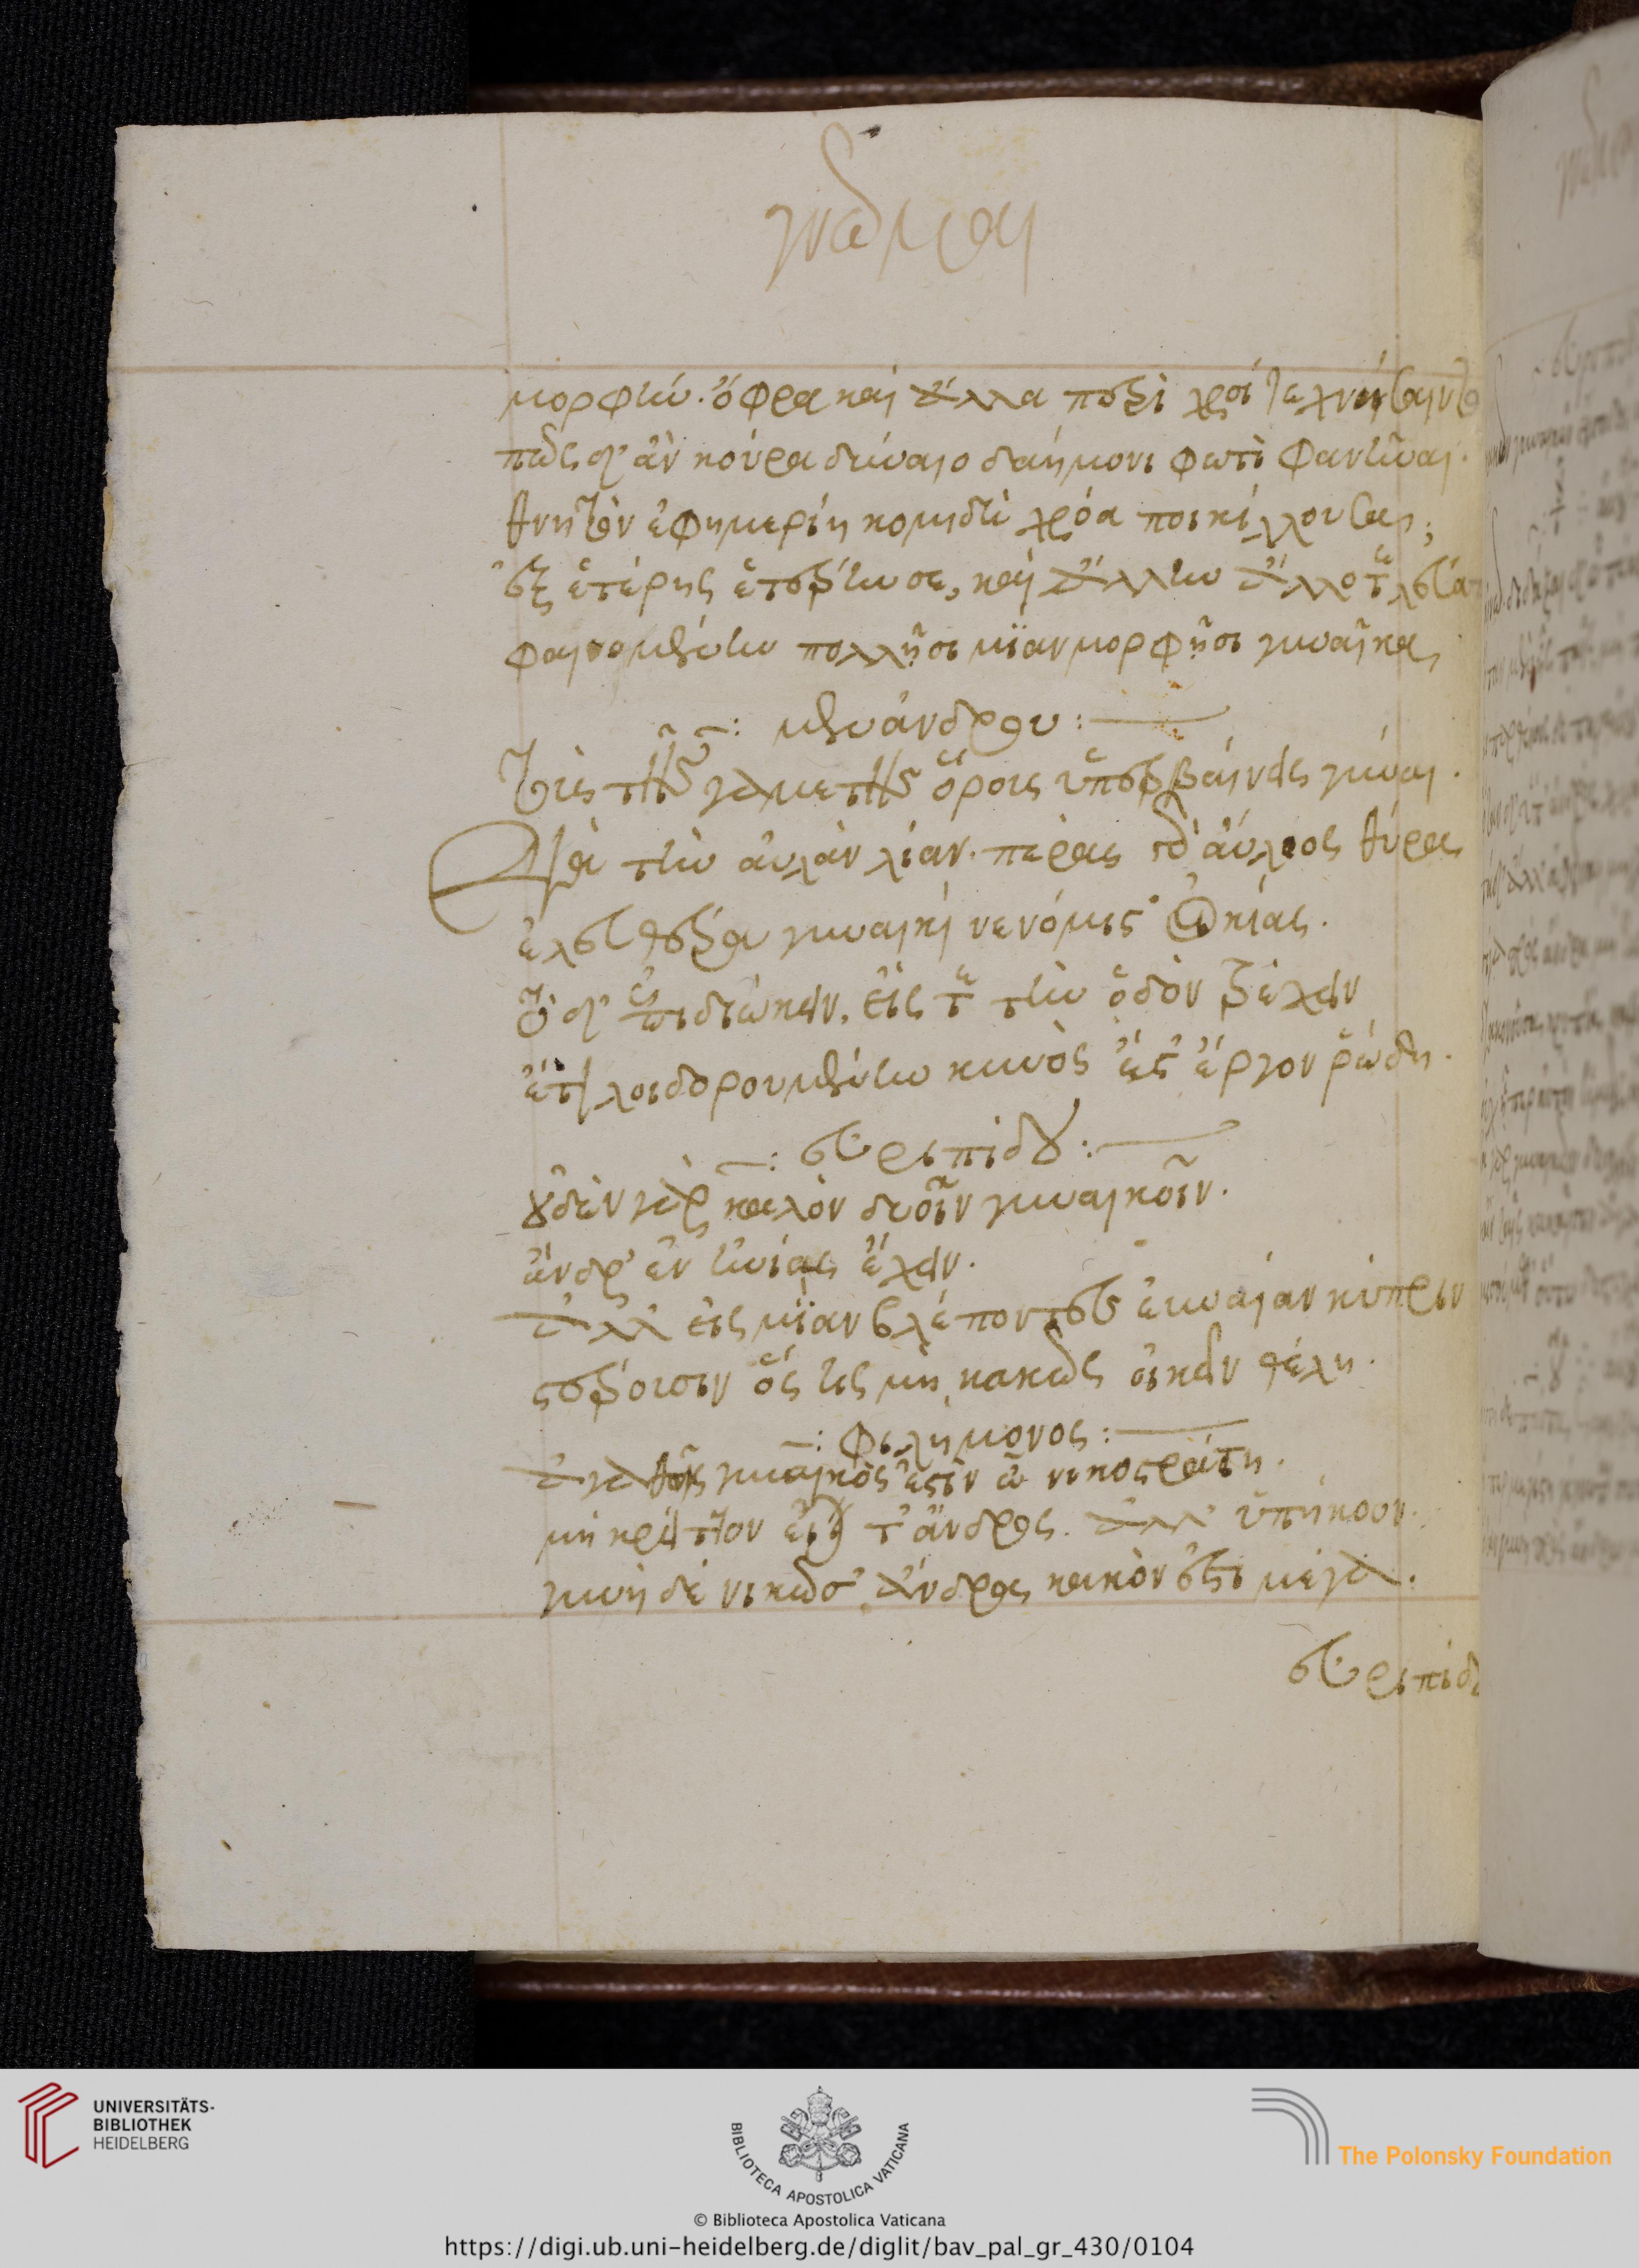 γνῶμαι
μορφὴν. ὄφρα καὶ ἄλλα περὶ χροῒ τεχνήσαιντο
πῶς δ' ἂν κούρα δύναιο δαήμονι φωτὶ φανῆναι.
θνητὸν ἐφημερίη κομιδῇ χρόα ποικίλλουσα;
ἐξ ἑτέρης ἑτέρην σε, καὶ ἄλλην ἄλλοτε
φαινομένην πολλῇσι μίαν μορφῇσι γυναῖκα
:μενάνδρου:
τοὺς τῆς γαμετῆς ὅρους ὑπερβαίνεις γύναι.
διὰ τὴν αὐλὰν λίαν. πέρας δ' αὔλιος θύρα
ἐλευθέρα γυναικὶ νενόμιστ' οἰκίας.
τὸ δ' ἐπιδιώκειν, εἰς τε τὴν ὁδὸν τρέχειν
ἔτι λοιδορουμένην κυνὸς ἐστ' ἔργον ῥώδη.
:εὐριπίδου:
οὐδὲν γὰρ καλὸν δυοῖν γυναικοῖν.
ἄνδρ' ἓν ἡνίας ἔχειν.
ἀλλ' εἰς μίαν βλέποντες εὐναίαν κύπριν
στέργουσιν ὅστις μὴ κακῶς οἰκεῖν θέλῃ.
:φιλήμονος:
ἀγαθῆς γυναικὸς ἐστὶν ὦ νικοστράτη.
μὴ κρείττον' εἶναι τ' ἄνδρος. ἀλλ' ὑπήκοον.
γυνὴ δὲ νικῶσ' ἄνδρα κακὸν ἐστι μέγα.
εὐριπίδ
UNIVERSITÄTS-
BIBLIOTHEK
HEIDELBERG
BIBLIOTECA APOSTOLICA VATICANA
The Polonsky Foundation
© Biblioteca Apostolica Vaticana
https://digi.ub.uni-heidelberg.de/diglit/bav_pal_gr_430/0104